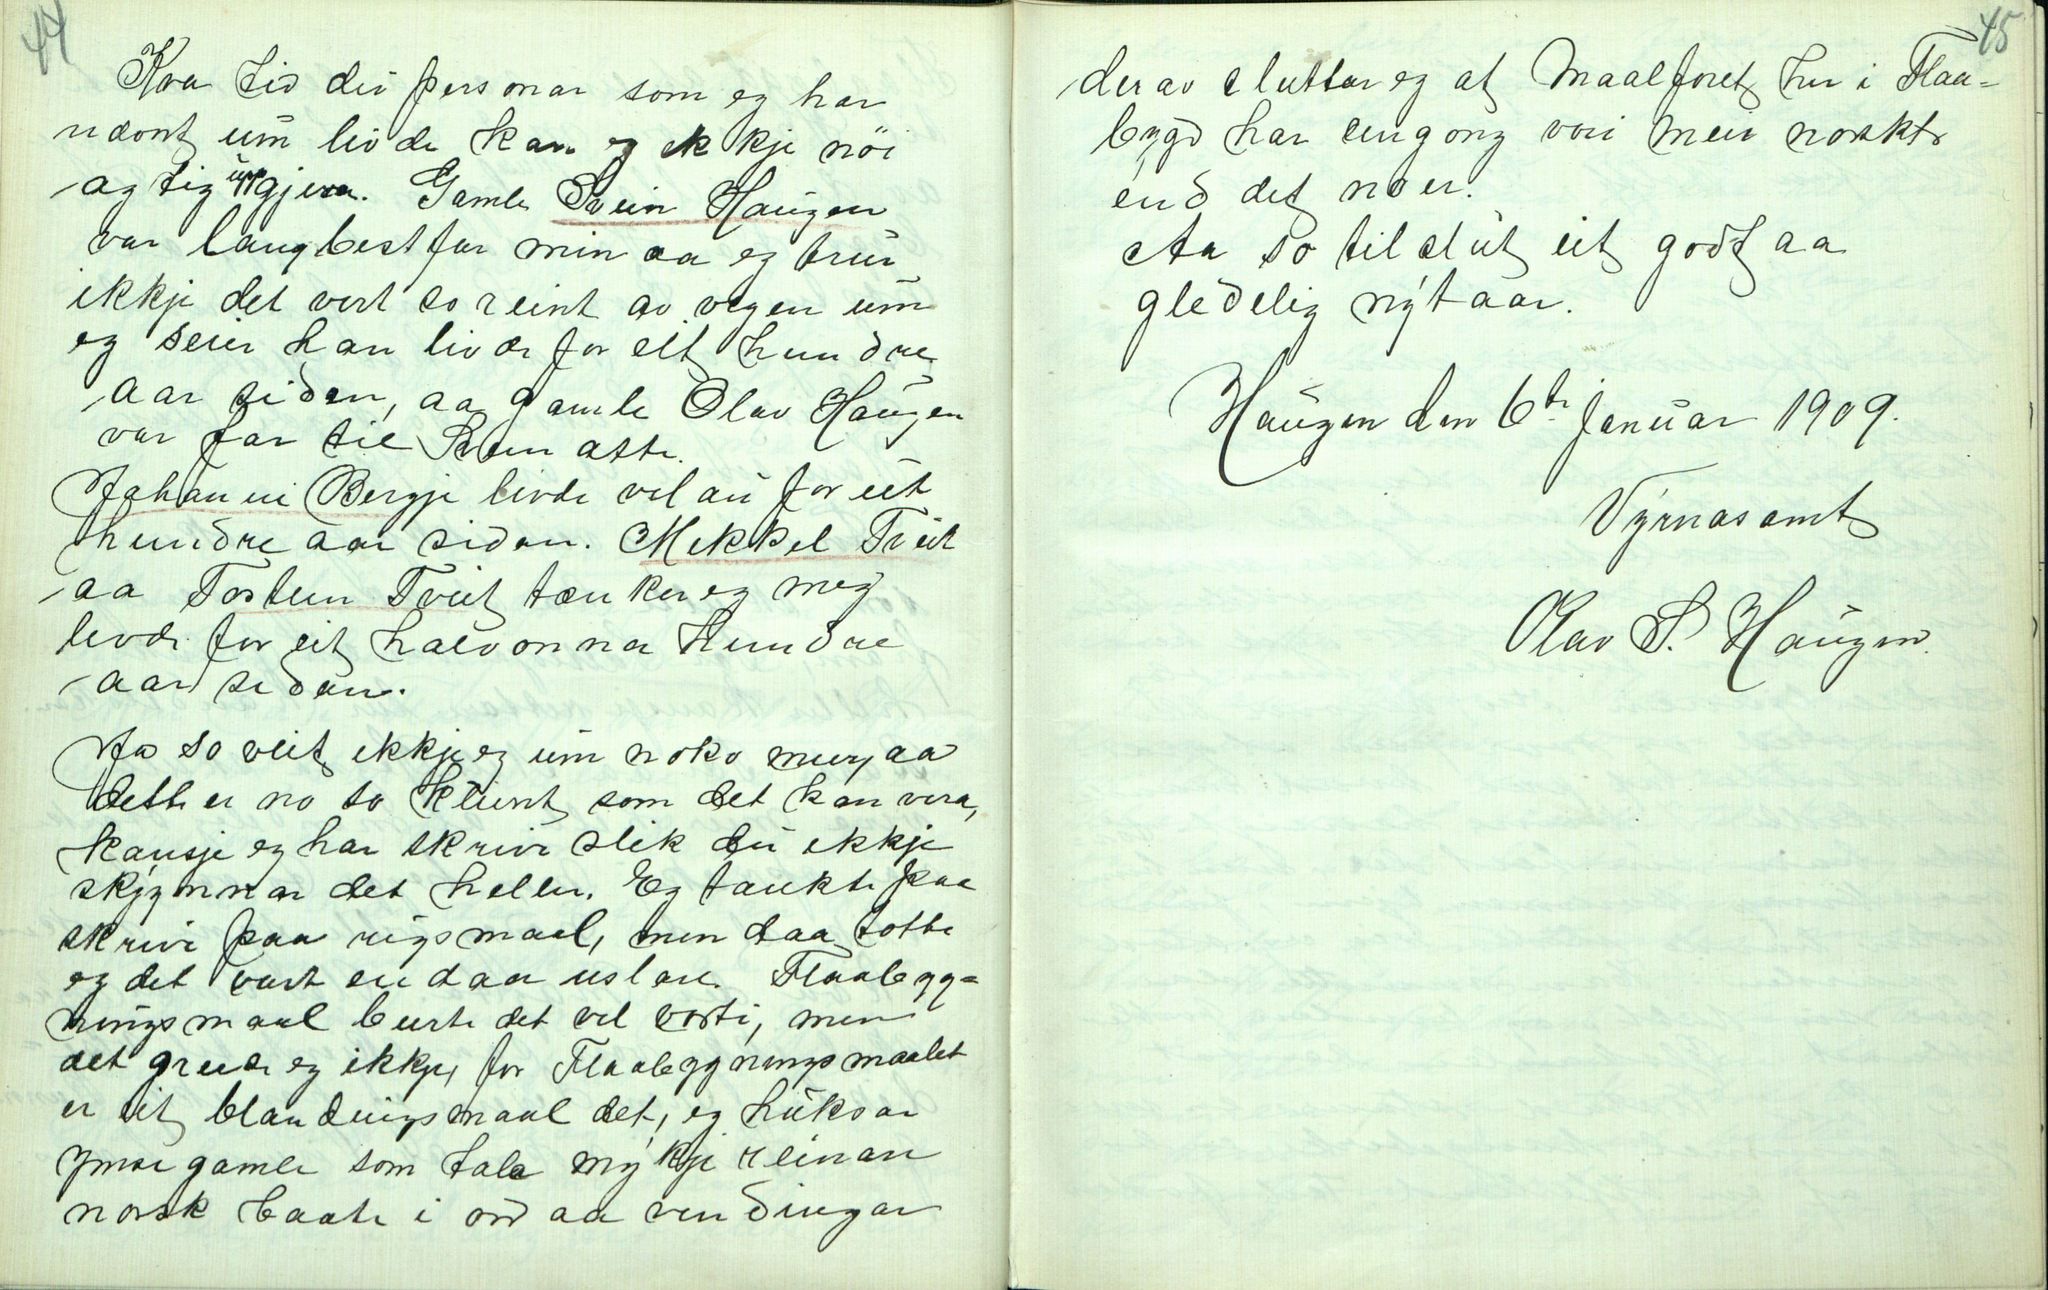 44
Kva tid dei personar som eg har
nævnt um livde kan eg ikkje nöi
agtig uppgjeva. Gamle Svein Haugen
var langbestfar min aa eg trur
ikkje det vert so reint av vegen um
eg seier han livde for eit hundre
aar siden, aa gamle Olav Haugen
var far til Svein atte.
Johannei Bergje livde vel au for eit
hundre aar sidan. Mekkel Tveit
aa Tostein Tveit tænker eg meg
levde for eit halvonna hundre
aar sidan.
Aa so veit ikkje eg um noko meir, aa
dette er no so kleint som det kan vera,
kansje eg har skrive slik du ikkje
skjynnar det heller. Eg tænkte paa
skrive paa rigsmaal, men daa totte
eg det vart endaa uslare. Flaabygg=
ningsmaal burte det vel vorti, men
det greide eg ikkje, for Flaabygningsmaalet
er eit blandingsmaal det, eg huksar
ymse gamle som tala mykje reinare
norsk baate i ord aa vendingar
45
derav sluttar eg at Maalföret her i Flaa=
bygd har eingong vori meir norskt
end det no er.
Aa so tilslut eit godt aa
gledelig nytaar.
Haugen den 6te Januar 1909.
Vyrnasamt
Olav S. Haugen.